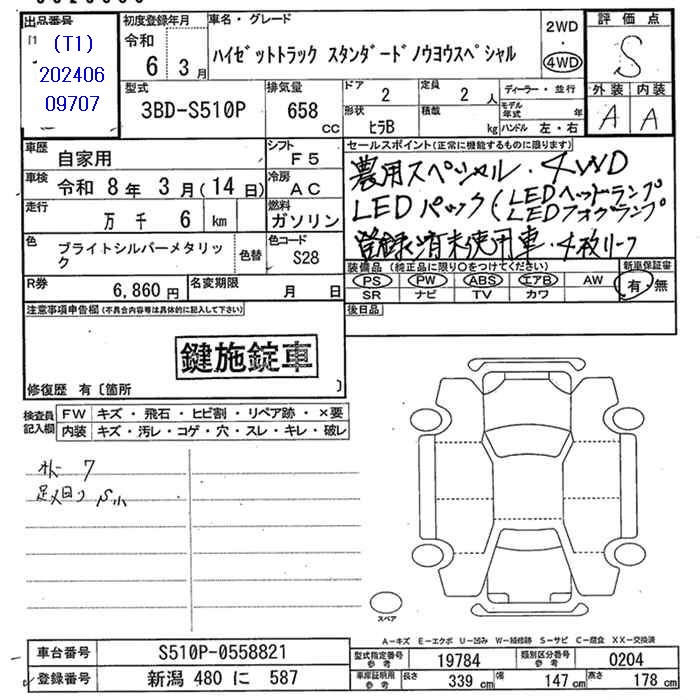 出品番号
(T1)
202406
09707
初度登録年月
令和
6 3月
車名・グレード
ハイゼットトラック スタンダードノウヨウスペシャル
2WD
・
4WD
評価点
S
外装 内装
A A
型式
3BD-S510P
排気量
658
cc
ドア
2
定員
2 人
ディーラー・並行
形状
ヒラB
積載
kg
モデル年式 年
ハンドル 左・右
車歴
自家用
シフト
F5
車検
令和 8年 3月(14日)
冷房
AC
走行
万 千 6 km
燃料
ガソリン
色
ブライトシルバーメタリック
色替
色コード
S28
R券
6,860円
名変期限
月 日
セールスポイント(正常に機能するものに限ります)
農用スペシャル・4WD
LEDパック(LEDヘッドランプ
LEDフォグランプ
登録済未使用車・4枚リーフ
装備品(純正品に限り○をつけてください)
PS PW ABS エアB AW
SR ナビ TV カワ
新車保証書
有・無
後日品
注意事項申告欄(不具合内容等は具体的に記入して下さい)
鍵施錠車
修復歴 有〔箇所 〕
検査員
記入欄
FW キズ・飛石・ヒビ割・リペア跡・×要
内装 キズ・汚レ・コゲ・穴・スレ・キレ・破レ
スペア
A-キズ E-エクボ U-凹み W-補修跡 S-サビ C-腐食 XX-交換済
車台番号
S510P-0558821
型式指定番号
参考
19784
類別区分番号
参考
0204
登録番号
新潟 480 に 587
車庫証明用
参考
長さ
339 cm
幅
147 cm
高さ
178 cm